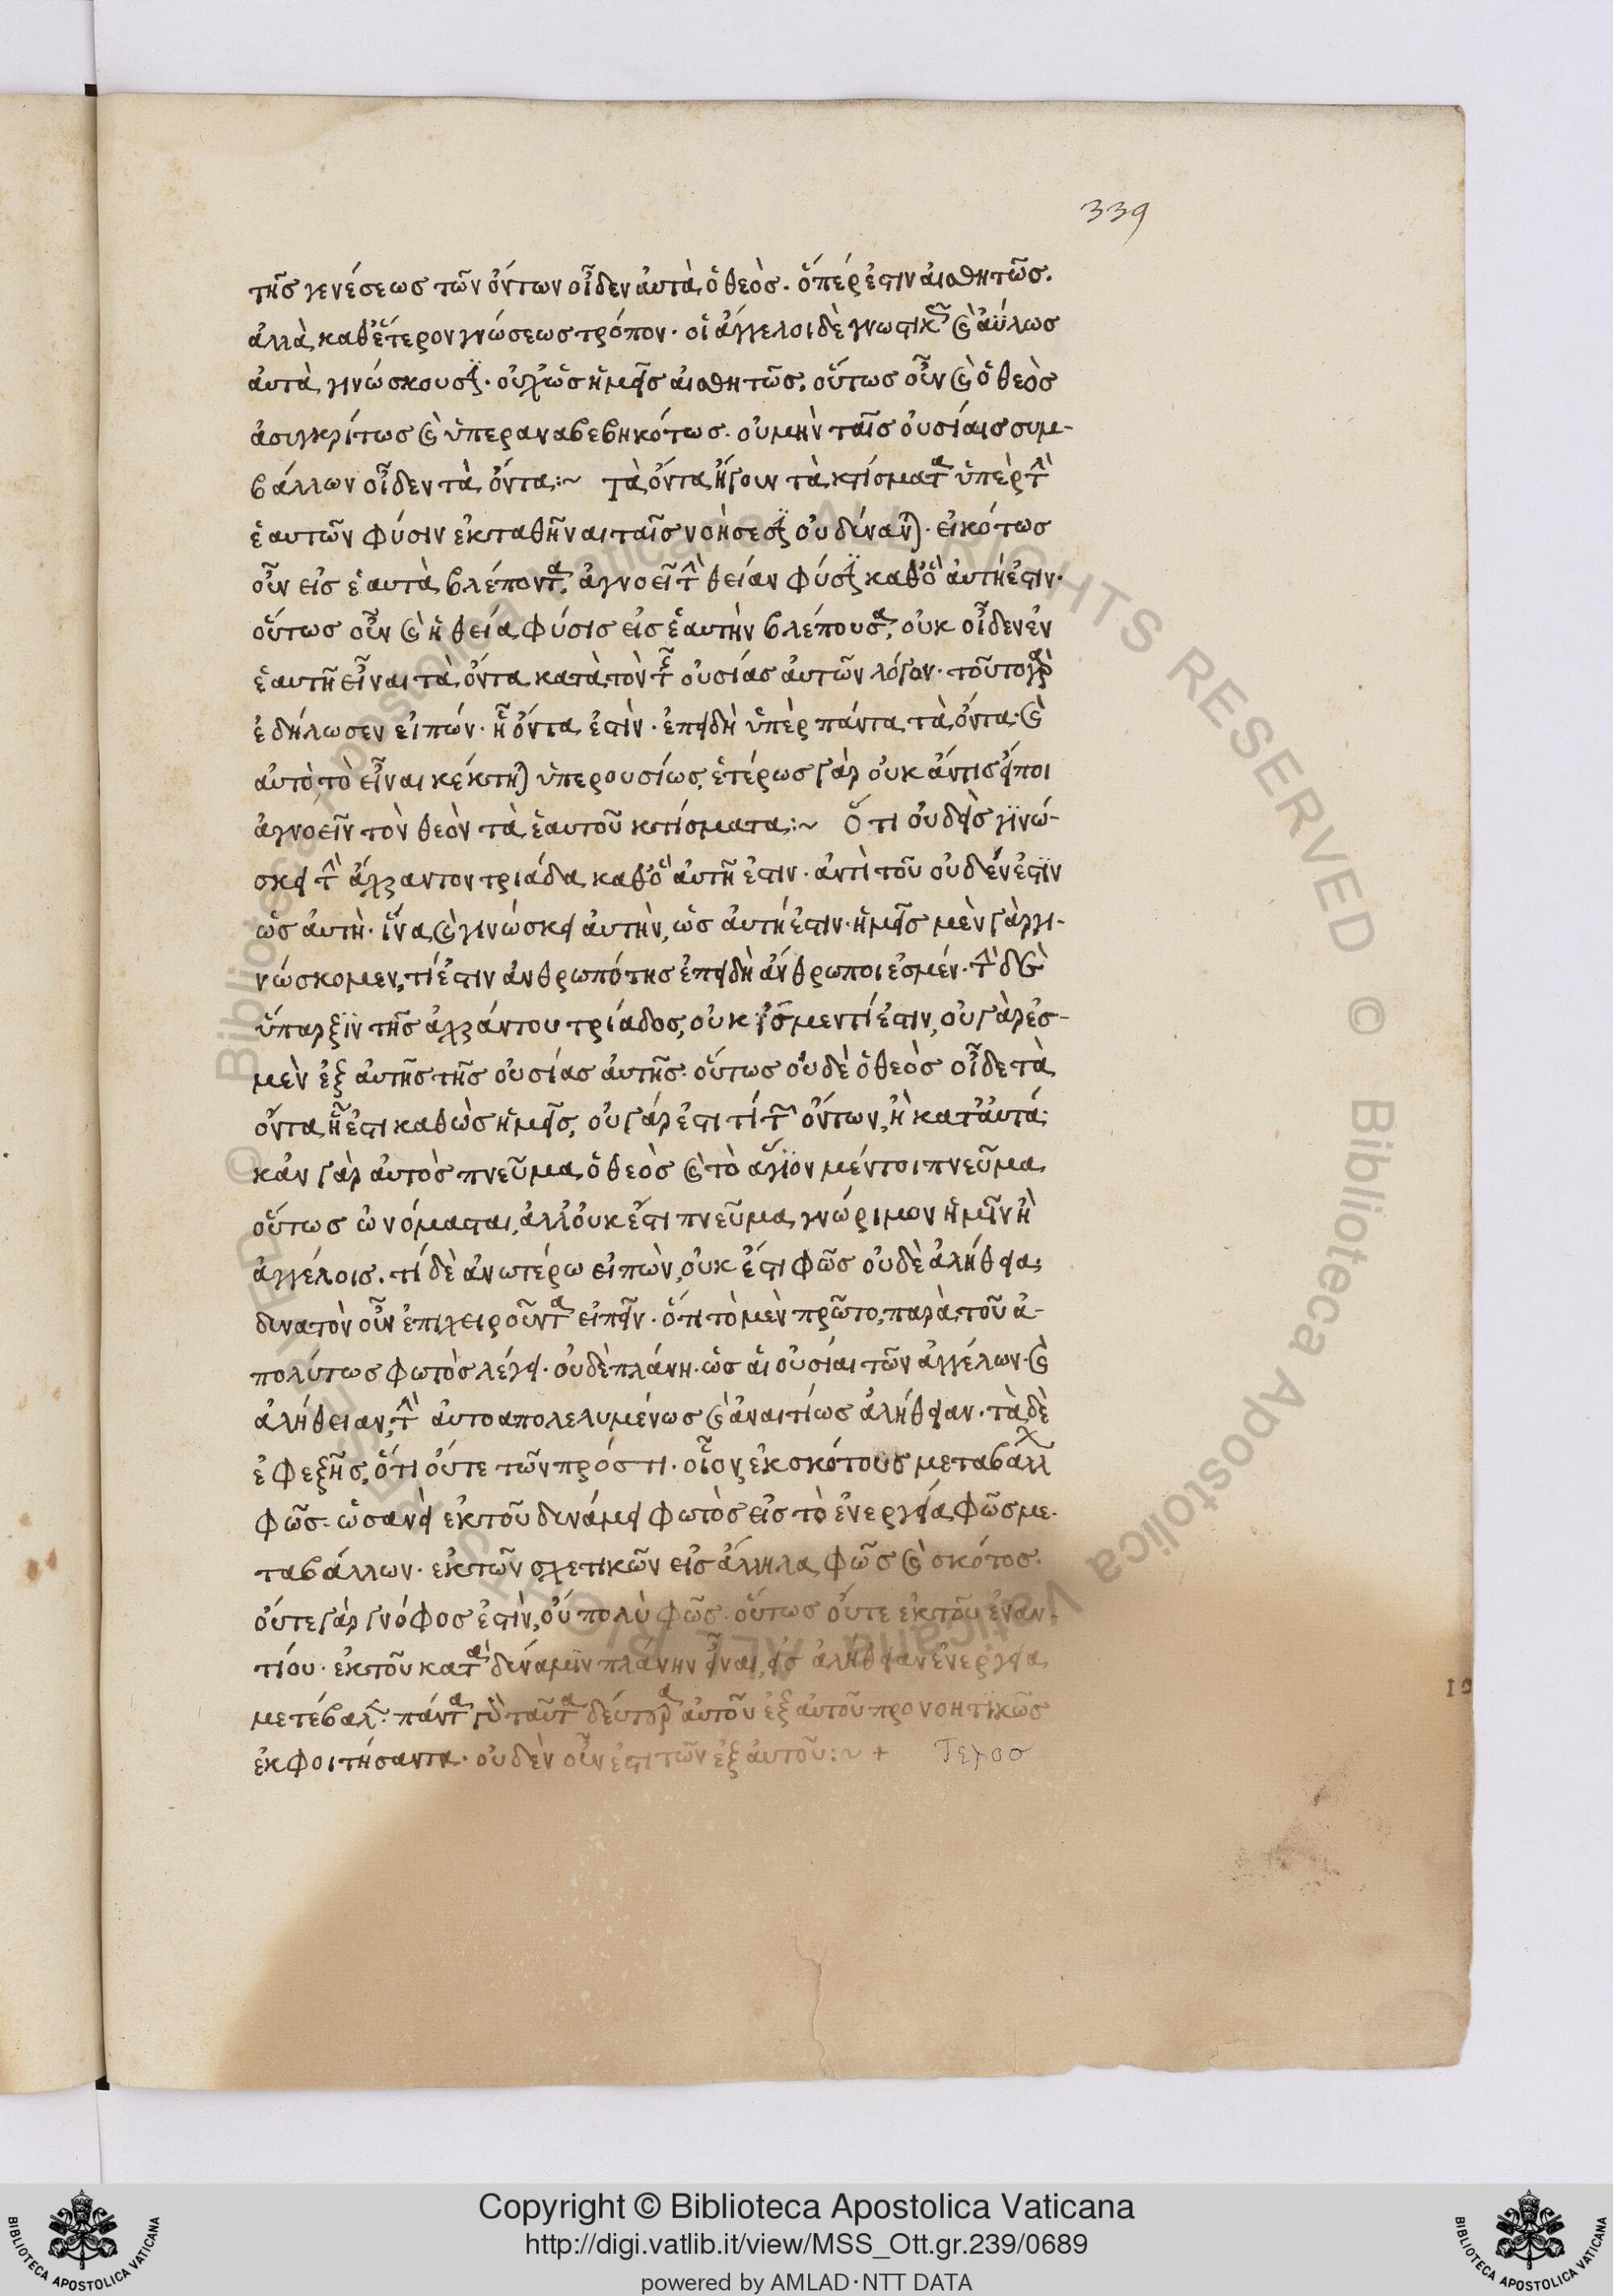 339
τῆς γενέσεως τῶν ὄντων οἶδεν αὐτὰ ὁ θεὸς· ὅπέρ ἐστιν αἰσθητῶς·
ἀλλὰ καθ᾽ ἕτερον γνώσεως τρόπον· οἱ ἄγγελοι δὲ γνωστικ(ῶς) καὶ ἀΰλως
αὐτὰ γινώσκουσιν· οὐχ ὡς ἡμεῖς αἰσθητῶς, οὕτως οὖν καὶ ὁ θεὸς
ἀσυγκρίτως καὶ ὑπεραναβεβηκότως· οὐ μὴν ταῖς οὐσίαις συμ-
βάλλων οἶδεν τὰ ὄντα:~ τὰ ὄντα ἤγουν τὰ κτίσματα ὑπὲρ τὴν
ἑαυτῶν φύσιν ἐκταθῆναι ταῖς νοήσεσιν οὐ δύναν(ται)· εἰκότως
οὖν εἰς ἑαυτὰ βλέποντα, ἀγνοεῖ τὴν θείαν φύσιν καθ᾽ ὃ αὐτή ἐστιν·
οὕτως οὖν καὶ ἡ θεία φύσις εἰς ἑαυτὴν βλέπουσα, οὐκ οἶδεν ἐν
ἑαυτῇ εἶναι τὰ ὄντα κατὰ τὸν τῆς οὐσίας αὐτῶν λόγον· τοῦτο γὰρ
ἐδήλωσεν εἰπών· ᾗ ὄντα ἐστὶν· ἐπειδὴ ὑπὲρ πάντα τὰ ὄντα· καὶ
αὐτὸ τὸ εἶναι κέκτη(ται) ὑπερουσίως, ἑτέρως γὰρ οὐκ ἄν τις εἴποι
ἀγνοεῖν τὸν θεὸν τὰ ἑαυτοῦ κτίσματα:~ Ὅτι οὐδεὶς γινώ-
σκει τὴν ἄχραντον τριάδα καθ᾽ ὃ αὐτή ἐστιν· ἀντὶ τοῦ οὐδέν ἐστιν
ὡς αὐτὴ· ἵνα καὶ γινώσκει αὐτὴν, ὡς αὐτή ἐστιν· ἡμεῖς μὲν γὰρ γι-
νώσκομεν, τί ἐστιν ἀνθρωπότης ἐπειδὴ ἄνθρωποι ἐσμέν· τὴν δὲ
ὕπαρξιν τῆς ἀχράντου τριάδος, οὐκ ἴσμεν τί ἐστιν, οὐ γὰρ ἐσ-
μὲν ἐξ αὐτῆς τῆς οὐσίας αὐτῆς· οὕτως οὐδὲ ὁ θεὸς οἶδε τὰ
ὄντα ᾗ ἐστι καθὼς ἡμεῖς, οὐ γάρ ἐστι τί τῶν ὄντων, ἢ κατ᾽ αὐτά·
κἂν γὰρ αὐτὸς πνεῦμα ὁ θεὸς καὶ τὸ ἅγιον μέντοι πνεῦμα
οὕτως ὠνόμασται, ἀλλ᾽ οὐκ ἔστι πνεῦμα γνώριμον ἡμῖν ἢ
ἀγγέλοις. τί δὲ ἀνωτέρω εἰπὼν, οὐκ ἔστι φῶς οὐδὲ ἀλήθεια;
δυνατὸν οὖν ἐπιχειροῦντα εἰπεῖν· ὅτι τὸ μὲν πρῶτο, παρὰ τοῦ ἀ-
πολύτως φωτὸς λέγει· οὐδὲ πλάνη· ὡς αἱ οὐσίαι τῶν ἀγγέλων· καὶ
ἀλήθειαν, τὴν αὐτοαπολελυμένως καὶ ἀναιτίως ἀλήθειαν· τὰ δὲ
ἐφεξῆς, ὅτι οὔτε τῶν πρός τι· οἷον ἐκ σκότους μεταβάλλ
φῶς· ὡσανεὶ ἐκ τοῦ δυνάμει φωτὸς εἰς τὸ ἐνεργεία φῶς με-
ταβάλλων· ἐκ τῶν σχετικῶν εἰς ἄλληλα φῶς καὶ σκότος·
οὔτε γὰρ γνόφος ἐστὶν, οὐ πολὺ φῶς· οὕτως οὔτε ἐκ τοῦ ἐναν-
τίου· ἐκ τοῦ κατὰ δύναμιν πλάνην εἶναι, εἰς ἀλήθειαν ἐνεργεία
μετέβαλ· πάντα γὰρ ταῦτα δεύτερα αὐτοῦ ἐξ αὐτοῦ προνοητικῶς
ἐκφοιτήσαντα· οὐδὲν οὖν ἐστι τῶν ἐξ αὐτοῦ:~ + Τελοσ
Copyright © Biblioteca Apostolica Vaticana
http://digi.vatlib.it/view/MSS_Ott.gr.239/0689
powered by AMLAD·NTT DATA
BIBLIOTECA APOSTOLICA VATICANA
BIBLIOTECA APOSTOLICA VATICANA